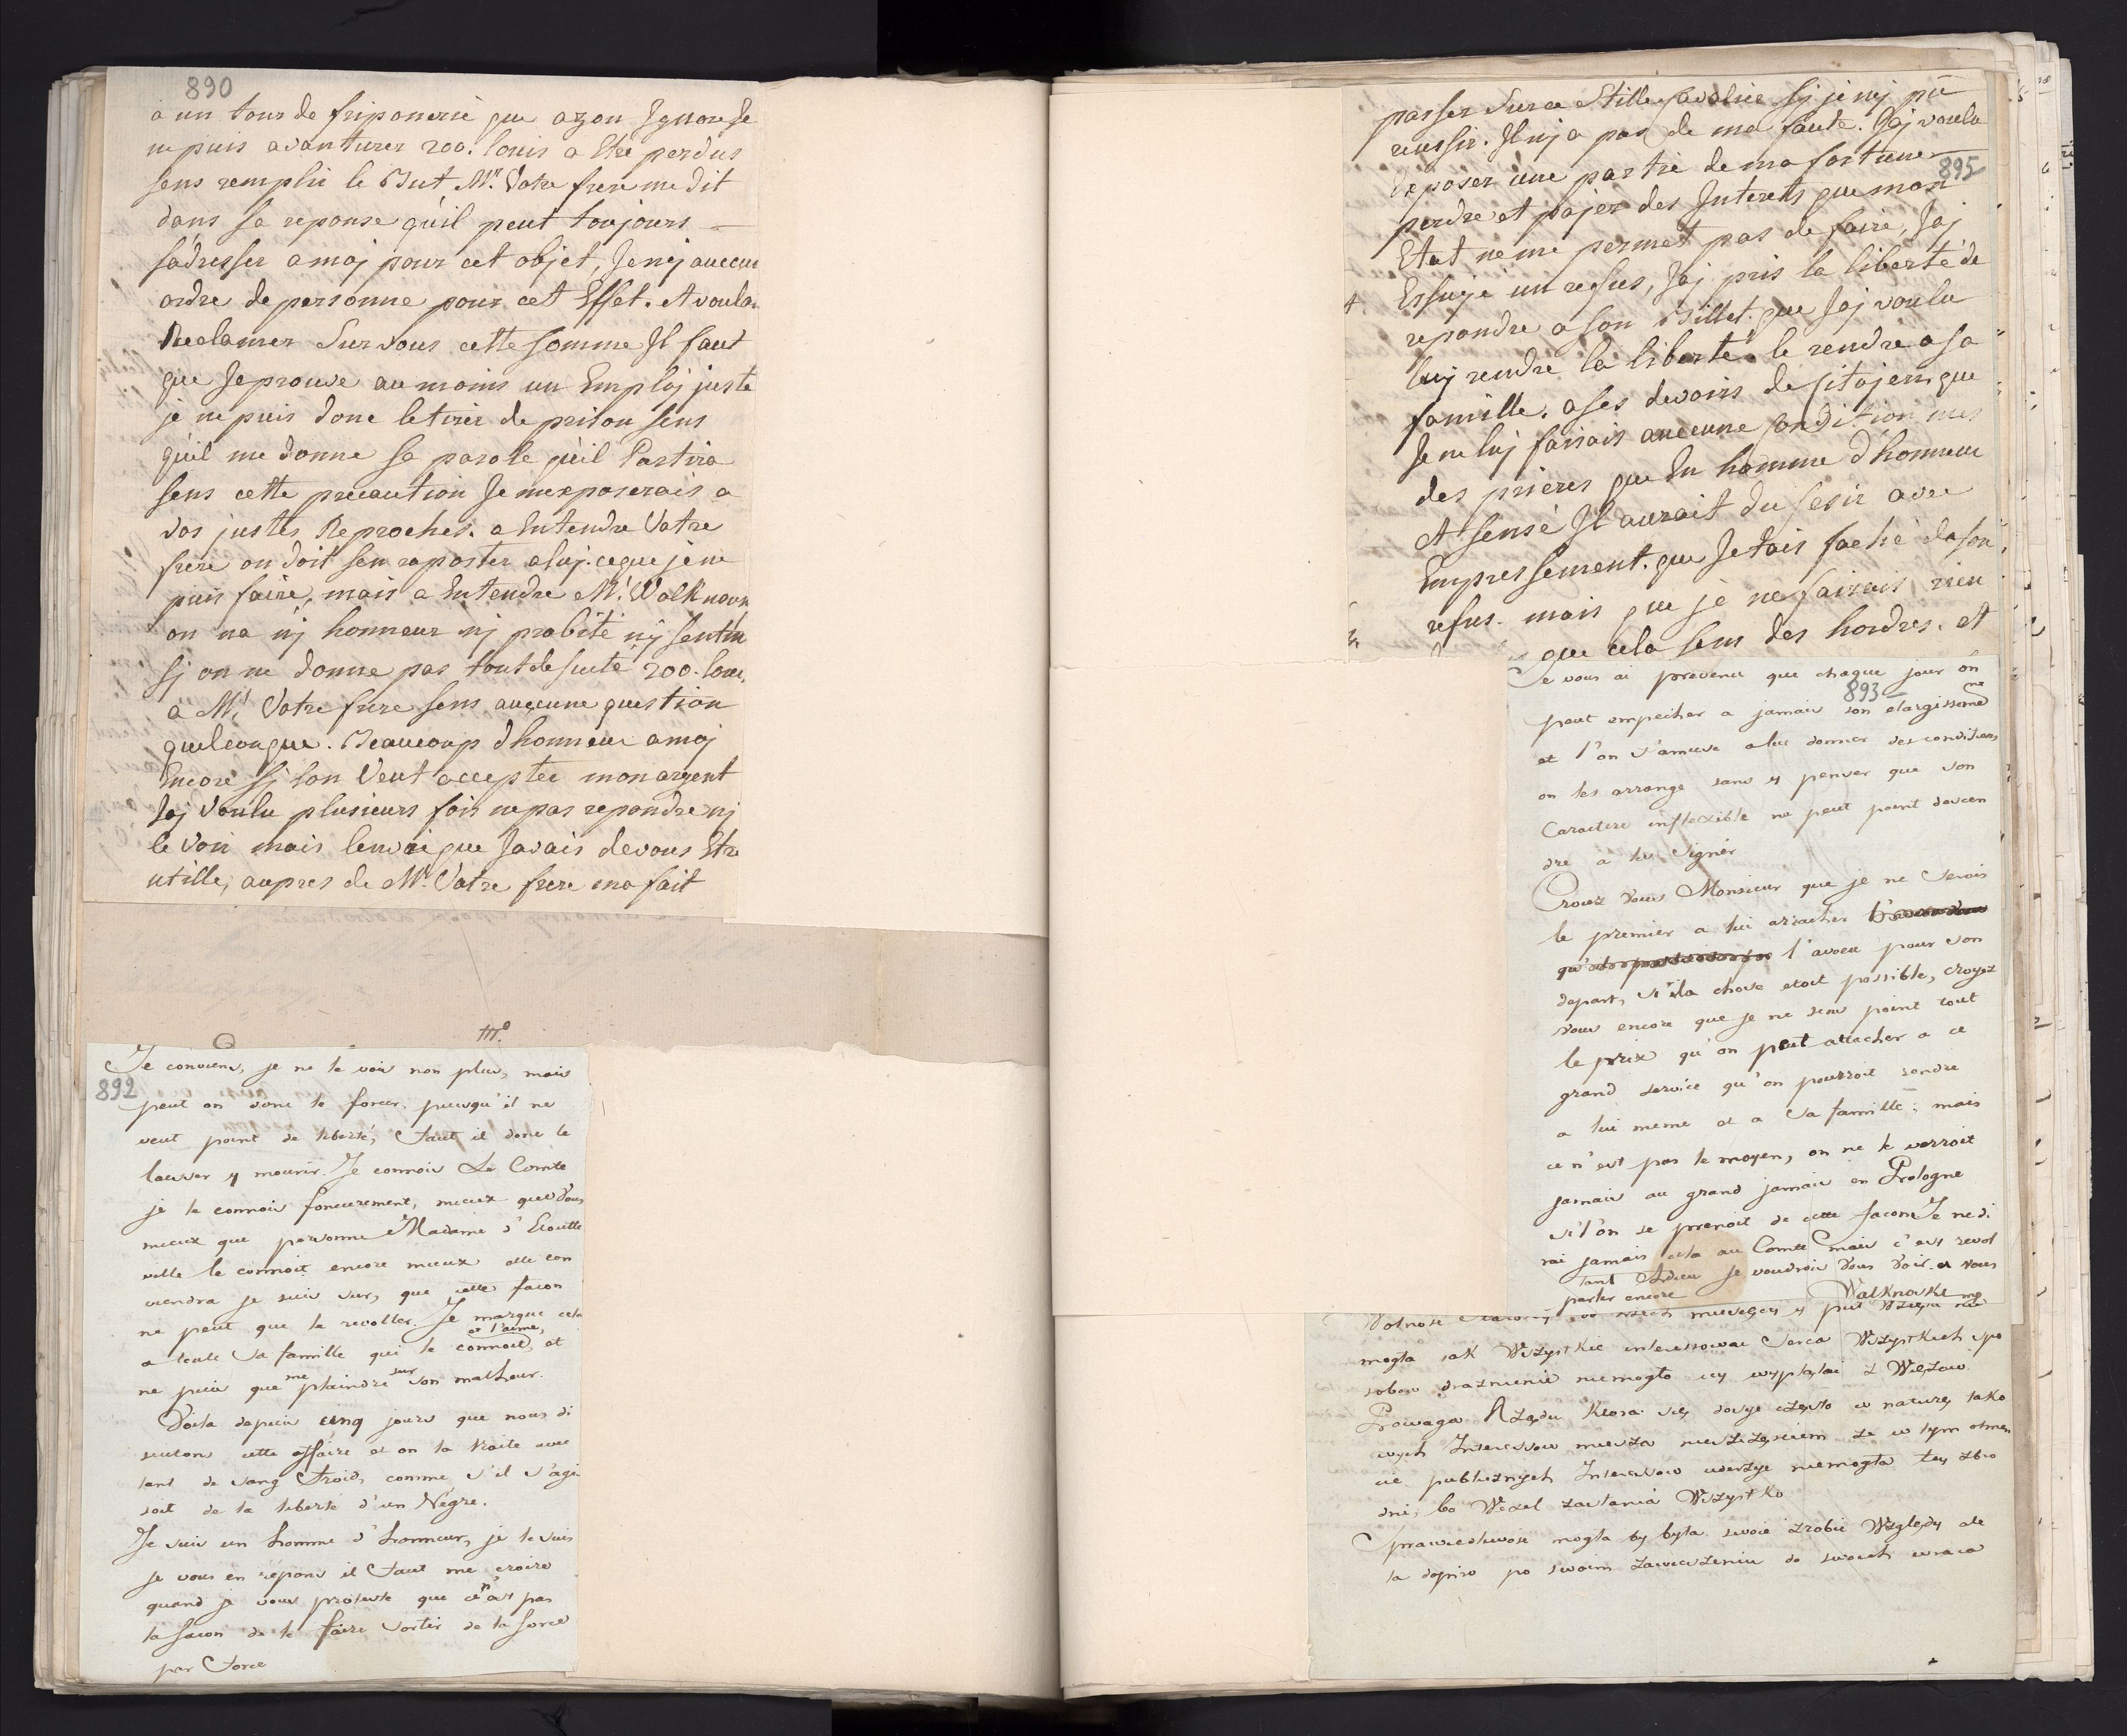 890
a un tour de friponerie que ayan Ignore Je
ne puis avanturer 200. louis a Etre perdus
sens remplir le But Mr. Votre frere me dit
dans sa reponse qu'il peut toujours
s'adresser a moj pour cet objet, Je n'ej aucun
ordre de personne pour cet Effet. et voula
Reclamer Sur vous cette somme Il faut
que Je prouve au moins un Emploj juste
je ne puis donc le tirer de prison sens
qu'il me donne sa parole qu'il Partira
sens cette precaution Je m'exposerais a
vos justes Reproches. a Entendre Votre
frere on doit s'en raporter a luj. ce que je ne
puis faire, mais a Entendre Mr. Walknovs
on na nj honneur nj probité nj sentim
sj on ne donne pas tout de suite 200. loui
a Mr. Votre frere sens auqune question
quelconque. Beaucoup d'honneur a moj
Encore sj lon Veut accepter mon argent
Jaj voulu plusieurs fois ne pas repondre nj
le Voir mais l'envie que Javais de vous Etre
utille, aupres de Mr. Votre frere ma fait
m°.
892
Je conviens, je ne le vois non plus, mais
peut on donc le forcer, puisqu'il ne
veut point de liberté, faut il donc le
laisser y mourir. Je connois Le Comte
je le connois foncierement, mieux que Vous
mieux que personne Madame d'Etoutte
ville le connoit encore mieux elle con
viendra je suis sur, que cette façon
ne peut que le revolter. Je marque cela
a toute sa famille qui le connoit, et l'aime, et
ne puis que me plaindre sur son malheur.
Voila depuis cinq jours que nous di
scutons cette affaire et on la traite avec
tant de sang froid, comme s'il s'agi
soit de la liberté d'un Négre.
Je suis un homme d'honneur, je le suis
je vous en répons il faut me croire
quand je vous proteste que ce n'est pas
la façon de le faire sortir de la force
par force
passer Sur ce Stille Cavalier sj je nej pû
reussir. Il nj a pas de ma faute. Jaj voulu
Exposer une partie de ma fortune
895
perdre et pajer des Interets que mon
Etat ne me permet pas de faire, Jaj
Essujé un refus, Jaj pris la liberté de
repondre a son Billet. que Jaj voulu
luj rendre la liberté. le rendre a sa
famille. a ses devoirs de sitojen, que
Je ne luj faisais auccune condition mes
des prieres que En homme d'honneur
et sensé Il aurait du sesir avec
Empressement. que Jetais faché de son
refus. mais que je ne fairais rien
que cela sens des hordres. et
Je vous ai prevenu que chaque jour on
893
peut empecher a jamais son elargisseme
et l'on s'amuse a lui donner des conditions
on les arrange sans y penser que son
Caractere inflexible ne peut point descen
dre a les signer
Croiez Vous Monsieur que je ne serois
le premier a lui arracher
qu' l'aveu pour son
depart, si la chose etoit possible, croyez
vous encore que je ne sens point tout
le prix qu'on peut attacher a ce
grand service qu'on pourroit rendre
a lui meme et a sa famille; mais
ce n'est pas le moyen, on ne le verroit
jamais au grand jamais en Pologne
si l'on se prenoit de cette facon Je ne di
rai jamais cela au Comte mais c'est revol
tant Adieu je voudrois Vous Voir et Vous
parler encore Walknovski mp
Wolnosc
mogla jak Wszystkie interessowac Serca Wszystkich spo
sobow draznienia niemoglo się wyplątai z Więzow.
Powaga Rządu ktora się daye często w naturę tako
wych Interessow miesza nieszczęściem ze w tym
publicznych Interessow niemogla tey zbro
dni, bo Wexel zastania Wszystko
Sprawiedliwosc mogla by byla swoie zrobic Względy ale
ta dopiro po swoim zawieszeniu do swoich wraca